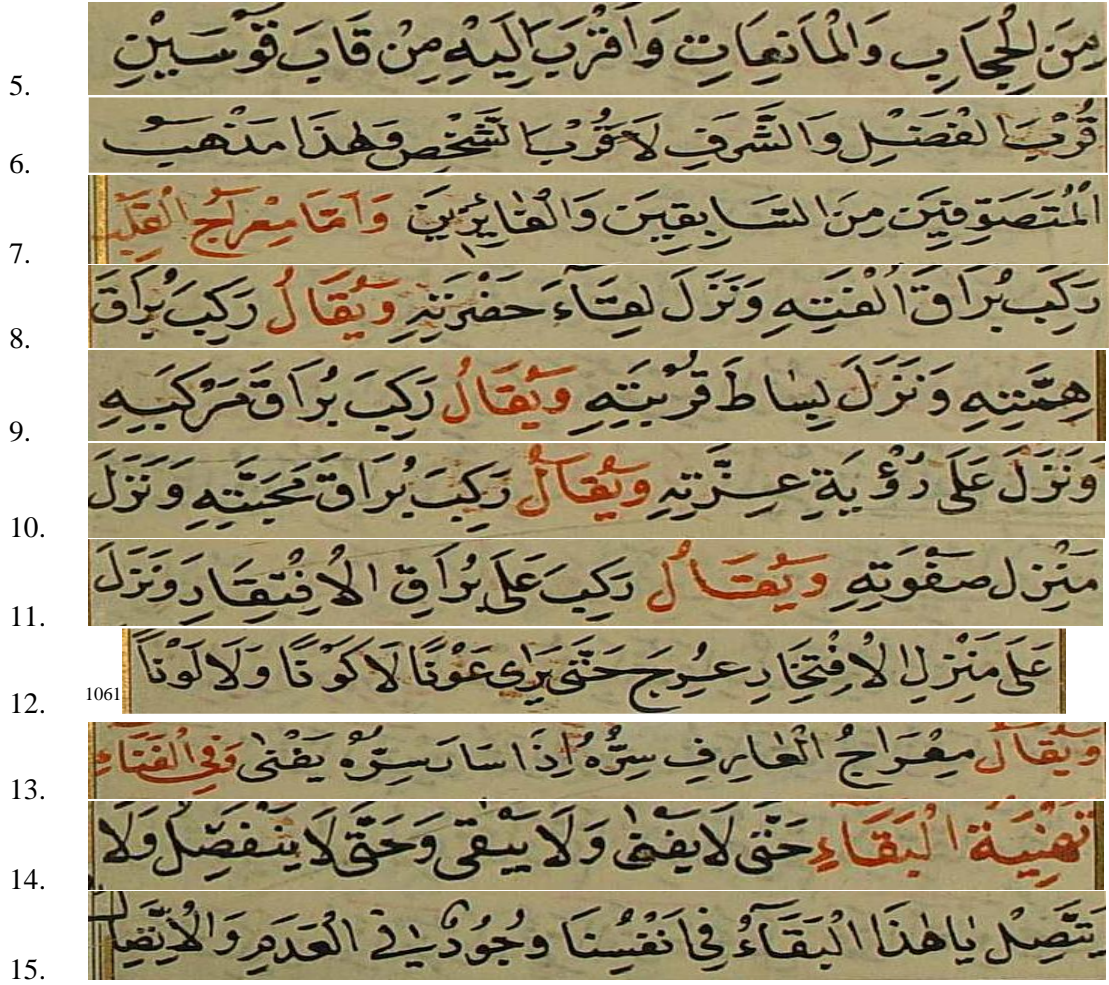 5. مِنَ الْحِجَابِ وَالْمَانِعَاتِ وَاَقْرَبَ اِلَيْهِ مِنْ قَابَ قَوْسَيْنِ
6. قُرْبَ الْفَضْلِ وَالشَّرَفِ لَا قُرْبَ الشَّخْصِ وَهٰذَا مَذْهَبُ
7. الْمُتَصَوِّفِينَ مِنَ السَّابِقِينَ وَالْفَائِزِينَ وَاَمَّا مِعْرَاجُ الْقَلْبِ
8. رَكِبَ بُرَاقَ اُلْفَتِهِ وَنَزَلَ لِقَاءَ حَضْرَتِهِ وَيُقَالُ رَكِبَ بُرَاقَ
9. هِمَّتِهِ وَنَزَلَ بِسَاطَ قُرْبَتِهِ وَيُقَالُ رَكِبَ بُرَاقَ مَرْكَبِهِ
10. وَنَزَلَ عَلَى رُؤْيَةِ عِزَّتِهِ وَيُقَالُ رَكِبَ بُرَاقَ مَحَبَّتِهِ وَنَزَلَ
11. مَنْزِلَ صَفْوَتِهِ وَيُقَالُ رَكِبَ عَلَى بُرَاقِ الْاِفْتِقَارِ وَنَزَلَ
12. 1061 عَلَى مَنْزِلِ الْاِفْتِخَارِ عُرِجَ حَتَّى يَرَى عَوْنًا لَا كَوْنًا وَلَا لَوْنًا
13. وَيُقَالُ مِعْرَاجُ الْعَارِفِ سِرُّهُ اِذَا سَارَ سِرُّهُ يَفْنٰى وَفِى الْفَنَاءِ
14. تَهْنِيَةُ الْبَقَاءِ حَتَّى لَا يَفْنٰى وَلَا يَبْقَى وَحَتَّى لَا يَنْفَصِلُ وَلَا
15. يَتَّصِلُ يَا هٰذَا الْبَقَاءُ فِى اَنْفُسِنَا وُجُودٌ فِى الْعَدَمِ وَالْاِتِّصَا